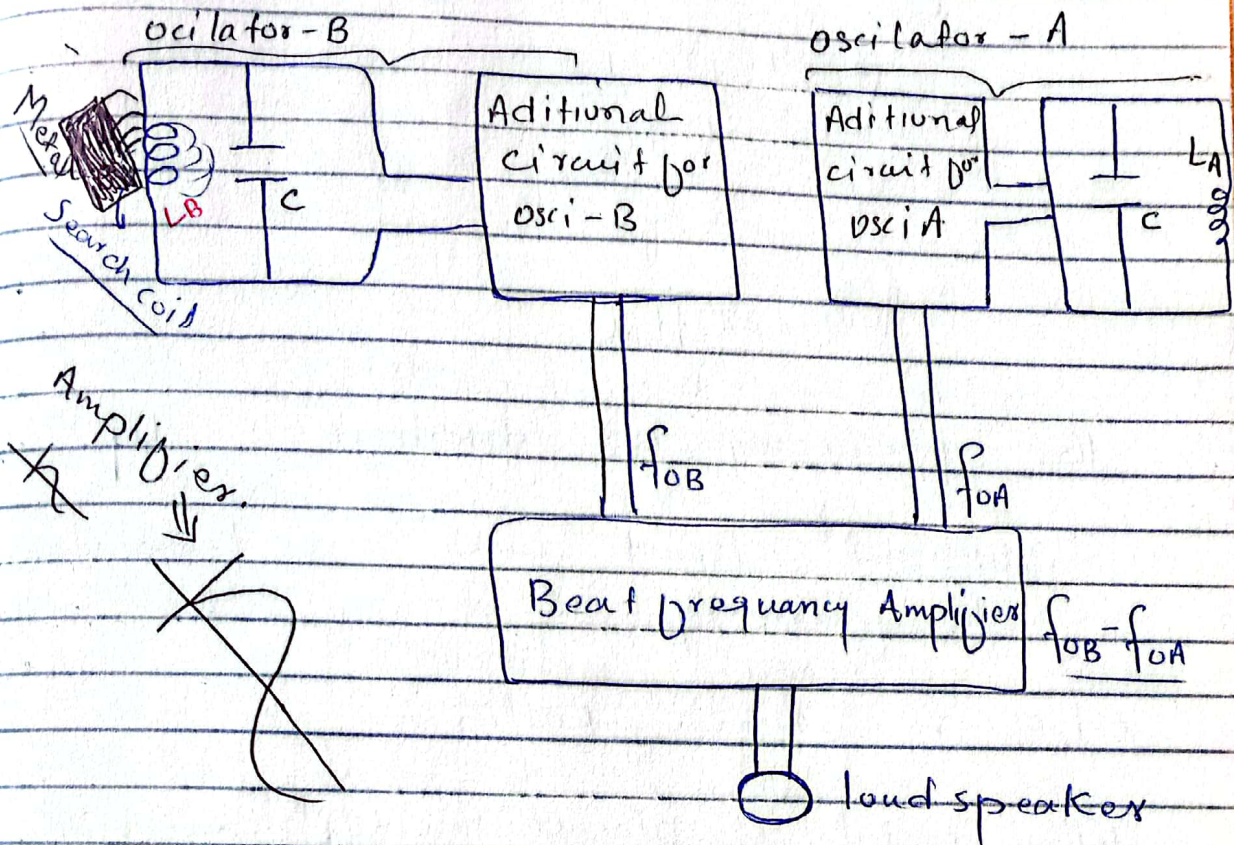 ocilator-B
oscilator - A
Metal
Search coil
LB
C
Aditiunal
circuit for
osci-B
Aditiunal
circuit for
osci A
C
LA
Amplifier.
foB
foA
Beat frequancy Amplifier
foB-foA
loud speaker